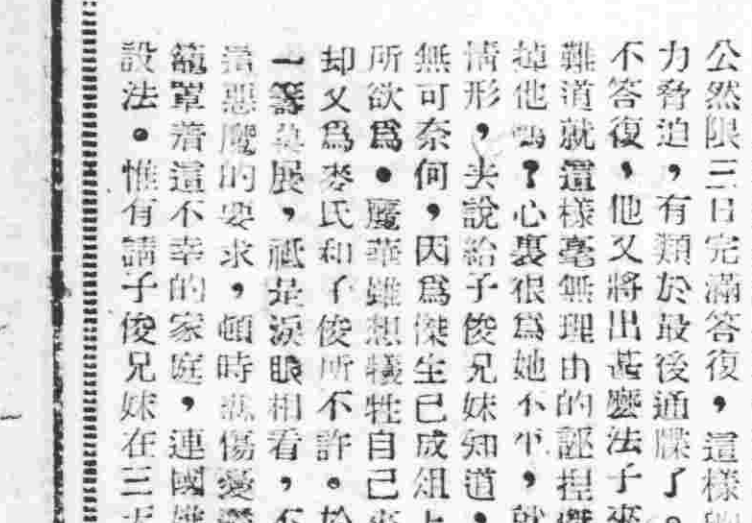 公然限三日完滿答復，這樣
力脅迫，有類於最後通牒了。
不答復，他又將出甚麼法子來
難道就這樣毫無理由的誣捏
掉他嗎？心裏很爲她不平，就
情形，夫說給子俊兄妹知道，
無可奈何，因爲傑生已成俎上
所欲爲。鳳華雖想犧牲自己來
却又爲麥氏和子俊所不許。於
一籌莫展，祗是淚眼相看，不
這惡魔的要求，頓時悲傷憂
籠罩着這不幸的家庭，連國雄
設法。惟有請子俊兄妹在三天